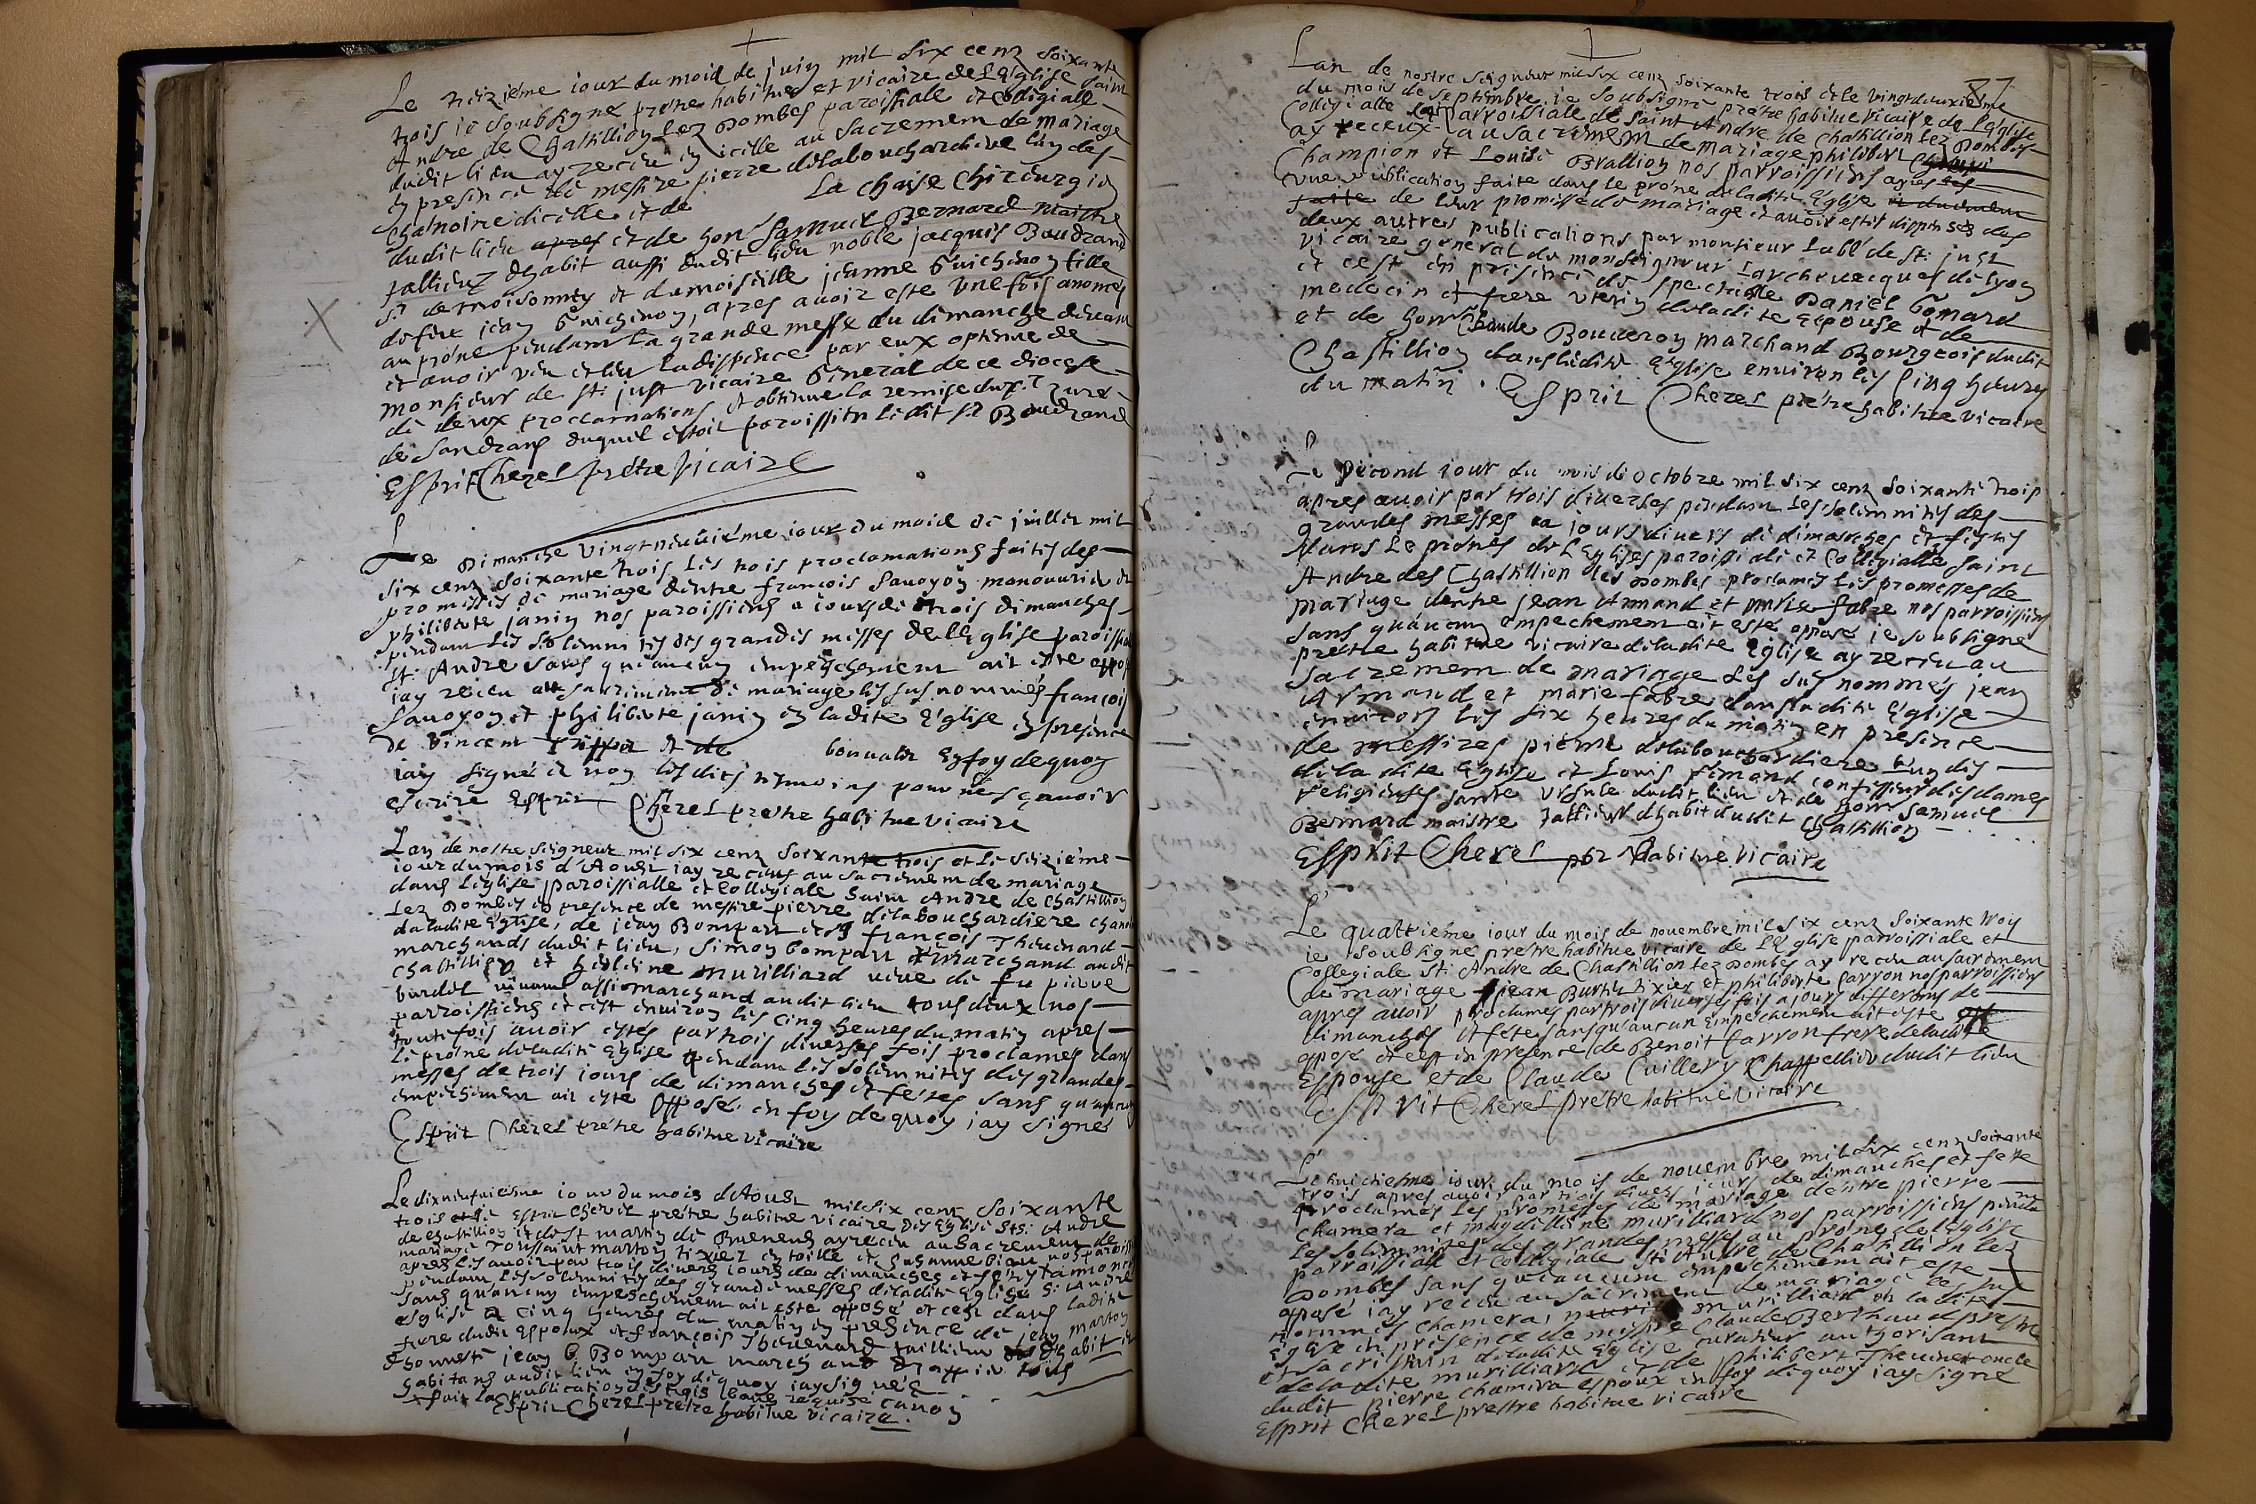 Le treizième iour du moid de juin mil six cenz soixante
trois ié soubsigné prétre habitué et vicaire de l'Eglise saint
Andre de Chastillion lez Dombes paroissiale et Colégialle
dudit lieu ay receu en icelle au sacrement de mariage
en presence de messire pierre delabouchardiere l'un des
chanoine dicelle et de La chaise Chirurgien
dudit lieu apres et de hon Samuel Bernard maistre
tallieur dhabit aussi dudit lieu noble jacques Baudrand
Sr de et damoiselle jeanne Guichenon fille
de feu jean Guichenon, apres avoir este une fois
au próne pendant la grande messe du dimanche
et avoir veu et leu la dispence par eux optenue de
monsieur de St. just vicaire General de ce diocese
de deux proclamations et obtenue la remise du Sr Curé
de Sandrans duquel estoit paroissien ledit Sr Baudrand
Esprit Cherel prétre vicaire
Le Dimanche vingt neufuiéme iour du moid de juillet mil
six cenz soixante trois les trois proclamations faites des
promesses de mariage dentre françois Sauoyon
philiberte janin nos paroissiens a iours de trois dimanches
pendant les solemnités des grandes messes de l'Eglise paroissiale
St. Andre sans qu'aucun empeschement ait esté opposé
iay receu au sacrement de mariage les susnommés françois
Sauoyon et philiberte janin en ladite Eglise en presence
de Vincent et de En foy de quoy
iay signé et non lesdits temoins pour ne sçavoir
escrire Esprit Cherel prétre habitue vicaire
Lan de nostre seigneur mil six cenz soixante trois et le seiziéme
iour du mois d'Aoust iay receus au sacrement de mariage
dans léglise paroissialle et Collegiale Saint Andre de Chastillion
lez Dombes en presence de messire pierre delabouchardiere
de ladite Eglise, de jean Bompart et françois Theuenard
marchands dudit lieu, Simon Bompart marchand audit
Chastillion et murilliard veue de fu pierre
marchand audit lieu tous deux nos
parroissiens et c'est environ les cinq heures du matin apres
toutefois auoir estés par trois diuerses fois proclames dans
le próne de ladite Eglise pendant les solemnités des grandes
messes de trois iours de dimanches et fétes sans qu'aucun
empeschement ait esté opposé. en foy de quoy iay signé
Esprit Cherel prétre habitue vicaire
Le dixneufuiesme iour du mois dAoust mil six cenz soixante
trois Esprit Cherel prétre habitue vicaire des Eglises Sts. Andre
de Chastillion et de St martin de Buenens ay receu au Sacrement de
mariage Toussaint marton tixier en toille et Susanne nos parroissiens
apres les auoir par trois diuers iours de dimanches et fétes
pendant les solemnités des grandes messes de ladite Eglise St Andre
sans qu'aucun empeschement ait este opposé et cest dans ladite
eglise a cinq heures du matin en presence de jean marton
frere dudit Espoux et françois Theuenard tallieur dhabit
dhonneste jean Bompart marchand drappier tous
habitans audit lieu en foy de quoy iay signé &
Esprit Cherel prétre habitue vicaire.
87
Lan de nostre seigneur mil six cenz soixante trois et le vingtdeuxieme
du mois de septembre ie soubsigné prétre habitue vicaire de l'Eglise
Collégialle et parroissiale de saint Andre de Chastillion lez Dombes
ay receux au sacrement de mariage philibert
Champion et Louise Brallion nos parroissiens apres
une publication faite dans le próne de ladite Eglise
faite de leur promesse de mariage et auoir estes dispensés des
deux autres publications par monsieur l'abbé de St. just
vicaire général de monseigneur l'archeuecque de lyon
et cest en présence de spectable Daniel Gomard
medecin et frere uterin de ladite Epouse et de
et de honn Claude Bouderon marchand Bourgeois dudit
Chastillion dans ladite Eglise environ les cinq heures
du matin. Esprit Cherel prétre habitue vicaire
Le second iour du mois de octobre mil six cenz soixante trois
apres auoir par trois diuerses pendant les solemnités des
grandes messes a iours diuers de dimanches et festes
dans le prónes de l'Eglises paroissiale et Collégialle saint
Andre des Chastillion les Dombes proclamés les promesses de
mariage dentre jean Armand et marie fabre nos parroissiens
sans qu'aucun empechement ait esté opposé ie soubsigné
prestre habitue vicaire de ladite Eglise ay receu au
sacrement de mariage les sus nommés jean
Armand et marie fabre dans ladite Eglise
environ les six heures du matin en presence
de messires pierre delabouchardiere l'un des
de la dite Eglise et Louis Simond confesseur des dames
religieuses sainte Ursule dudit lieu et de honn Samuel
Bernard maistre tallieur dhabit dudit Chastillion
Esprit Cherel ptr habitue vicaire
Le quattrieme iour du mois de nouembre mil six cenz soixante troy
ie soubsigné prétre habitue vicaire de l'Eglise parroissiale et
Collegiale St. Andre de Chastillion lez Dombes ay receu au sacrement
de mariage jean Burtin tixier et philiberte farron nos parroissiens
apres auoir proclames par trois diuerses fois a jours differens de
dimanches et féte sans qu'aucun Empechement ait este
opposé et cest en presence de Benoit farron frere de ladite
Espouse et de Claude Cuillery Chappellier dudit lieu
Esprit Cherel prétre habitue vicaire
Le huictiesme iour du mois de nouembre mil six cenz soixante
trois apres auoir par trois diuers jours de dimanches et fete
proclamés les promesses de mariage dentre pierre
chamera et magdellene murilliard nos parroissiens pendant
les solemnités des grandes messes au próne de l'Eglise
parroissiale et collégiale St. Andre de Chastillion lez
Dombes sans qu'aucun empechement ait este
opposé iay receu au sacrement de mariage les sus
nommés chamera, murilliard en ladite
Eglise en présence de messire Claude Berthaud prestre
et sacristain de ladite Eglise curateur authorisant
de ladite murilliard et de philibert Theuenet oncle
dudit pierre chamera espoux en foy de quoy iay signé
Esprit Cherel prestre habitue vicaire